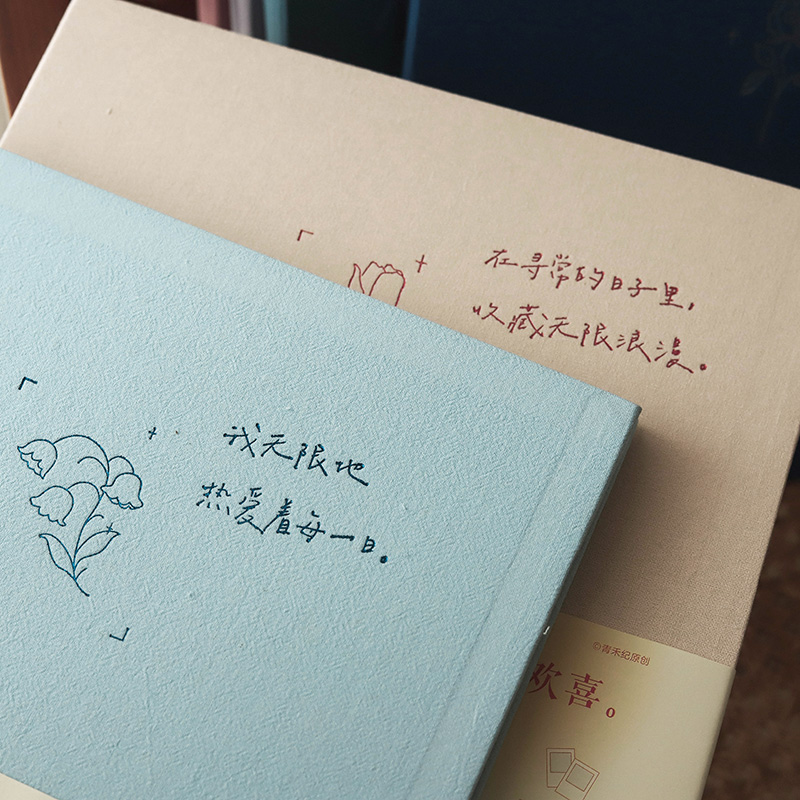 在寻常的日子里，
收藏无限浪漫。
我无限地
热爱着每一日。
©青禾纪原创
欢喜。